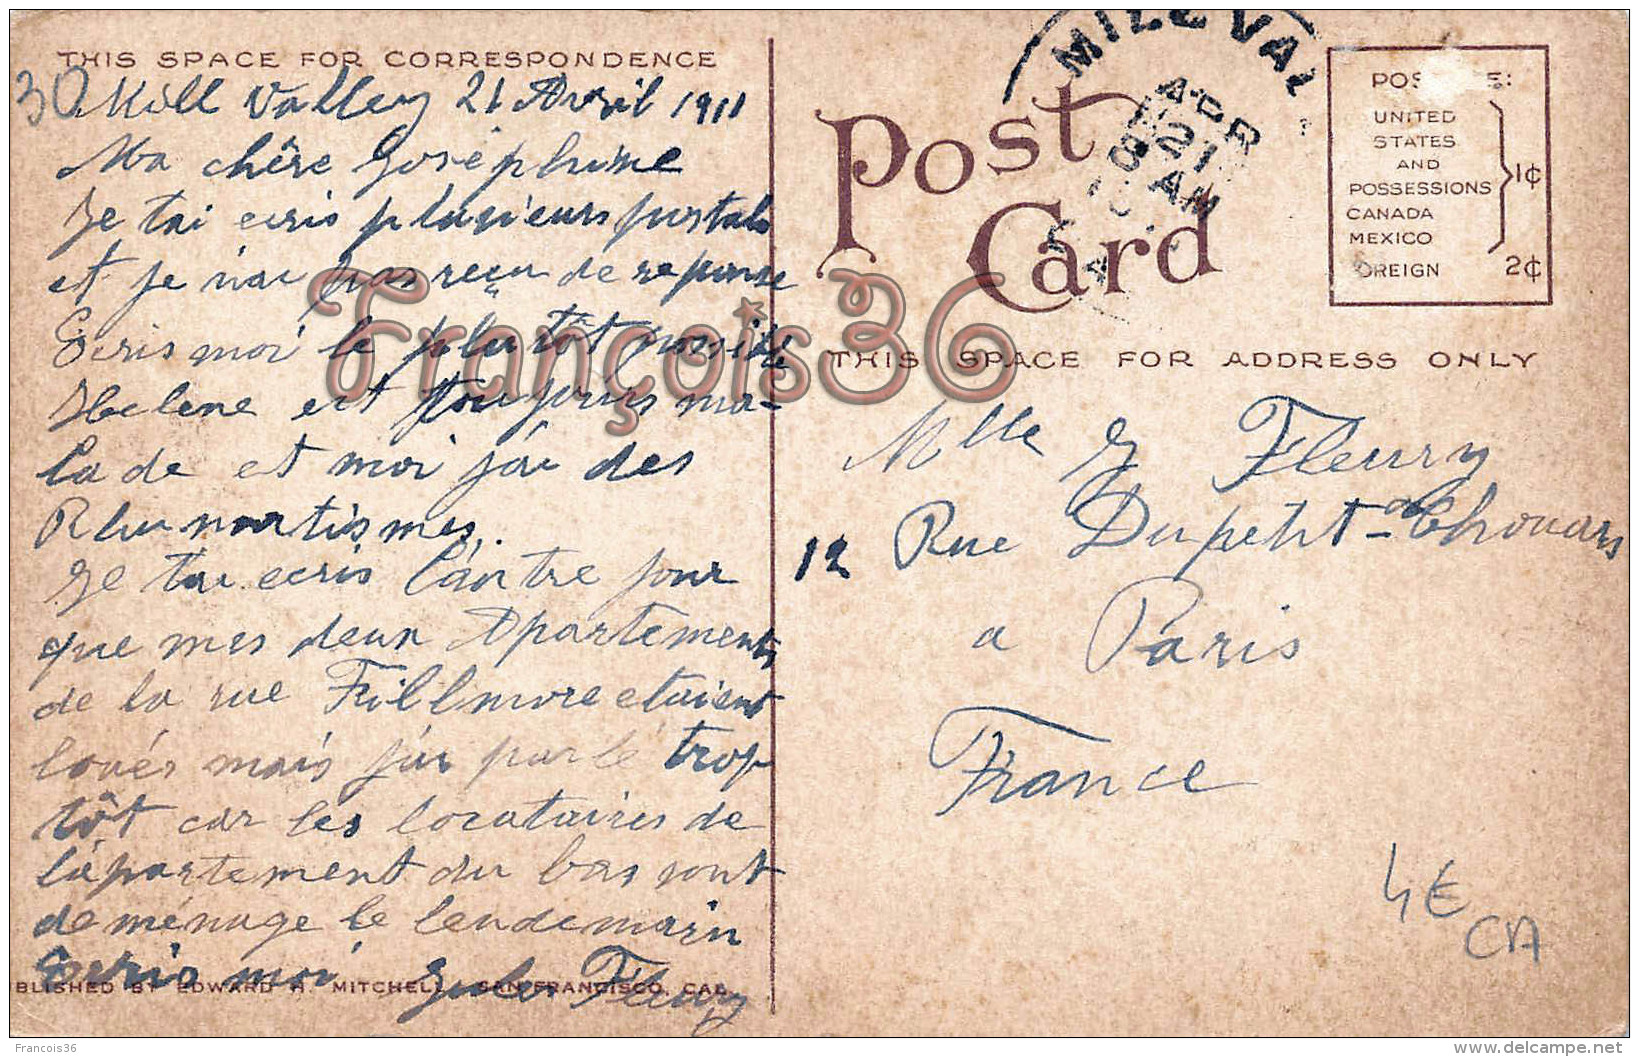 THIS SPACE FOR CORRESPONDENCE
30 Mill Valley 21 Avril 1911
Ma chère Joséphine
Je tai ecris plusieurs postals
et je n'ai pas reçu de reponse
Ecris moi le plutôt possible
Helene est toujours ma-
lade et moi j'ai des
Rhumatismes.
Je tai ecris l'autre jour
que mes deux Apartements
de la rue Fillmore etaient
loués mais j'ai parlé trop
tôt car les locataires de
l'apartement du bas sont
deménage le lendemain
Ecris moi Jules Fleury
BLISHED BY EDWARD H. MITCHELL, SAN FRANCISCO, CAL.
François36
MILL VAL
APR
21
AM
Post
Card
POS E:
UNITED
STATES
AND
POSSESSIONS
CANADA
MEXICO
1¢
OREIGN 2¢
THIS SPACE FOR ADDRESS ONLY
Mlle J Fleury
12 Rue Dupetit-Thouars
a Paris
France
4€
CA
Francois36
www.delcampe.net